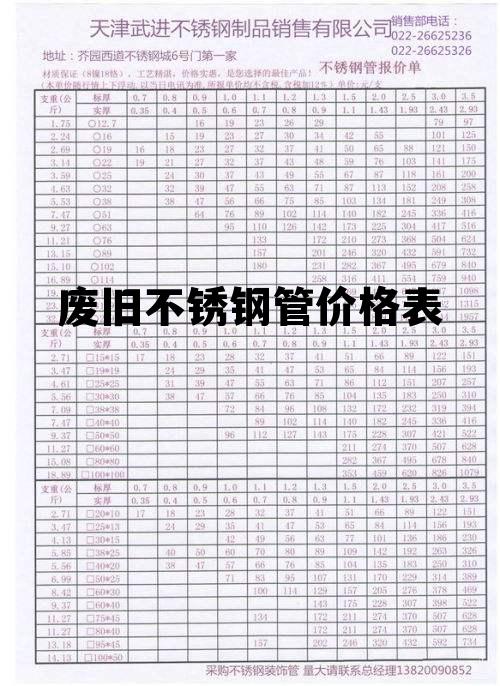 天津武进不锈钢制品销售有限公司
销售部电话：
022-26625236
022-26625326
地址：芥园西道不锈钢城6号门第一家
材质保证（8镍18铬），工艺精湛，价格实惠，是您选择的最佳产品！
不锈钢管报价单
支重(公斤) 标厚 0.7 0.8 0.9 1.0 1.1 1.2 1.3 1.5 2.0 2.5 3.0 3.5
实厚 0.35 0.4 0.5 0.6 0.7 0.8 0.9 1.1 1.43 1.93 2.43 2.93
1.75 ○12.7 16 19 23 26 29 79 97
2.24 ○16 15 19 23 27 30 34 42 55 101 125
2.69 ○19 16 18 23 27 32 37 41 50 65 88 121 150
3.14 ○22 19 21 27 32 37 43 48 59 76 103 141 175
3.59 ○25 24 30 37 43 49 55 67 87 118 161 200
4.63 ○32 32 39 47 55 63 71 87 113 152 208 258
5.53 ○38 38 47 56 66 75 85 103 134 181 249 308
7.47 ○51 64 76 89 102 114 140 182 245 336 416
9.27 ○63 95 110 126 142 173 225 304 417 516
11.21 ○76 133 172 210 273 368 504 624
13.15 ○89 157
15.10 ○102 180
16.89 ○114
废旧不锈钢管价格表
支重(公斤) 标厚 0.7 0.8 0.9 1.0 1.1 1.2 1.3 1.5 2.0 2.5 3.0 3.5
实厚 0.35 0.4 0.5 0.6 0.7 0.8 0.9 1.1 1.43 1.93 2.43 2.93
2.71 □15*15 17 18 23 28 32 37 41 51 66 89 122 151
3.47 □19*19 24 29 35 41 47 53 65 84 114 156 193
4.61 □25*25 31 39 47 55 63 71 86 112 151 207 257
5.56 □30*30 38 47 57 66 76 85 104 135 183 250 310
7.09 □38*38 72 84 96 108 132 172 232 319 394
7.47 □40*40 89 102 114 140 182 245 336 416
9.37 □50*50 96 112 127 143 175 228 307 421 522
11.27 □60*60 211 274 370 507 628
15.08 □80*80 282 367 495 678 840
18.89 □100*100 353 459 620 826 1079
支重(公斤) 标厚 0.7 0.8 0.9 1.0 1.1 1.2 1.3 1.5 2.0 2.5 3.0 3.5
实厚 0.35 0.4 0.5 0.6 0.7 0.8 0.9 1.1 1.43 1.93 2.43 2.93
2.71 □20*10 17 18 23 28 32 37 41 51 66 89 122 151
3.47 □25*13 24 29 35 41 47 53 65 84 114 156 193
4.13 □30*15 42 49 56 63 77 101 136 186 230
5.85 □38*25 40 50 60 70 80 89 109 142 192 263 326
5.56 □40*20 38 47 57 66 76 85 104 135 183 250 310
6.99 □50*25 71 83 95 107 131 170 229 314 389
8.42 □60*30 100 114 129 157 205 276 378 469
9.37 □60*40 143 175 228 307 398 522
11.27 □75*45 134 172 211 274 370 507 628
172 211 274 370 507 628
13.18 □95*45 157 202 246 320 432 592 734
14.13 □100*50
采购不锈钢装饰管 量大请联系总经理13820090852